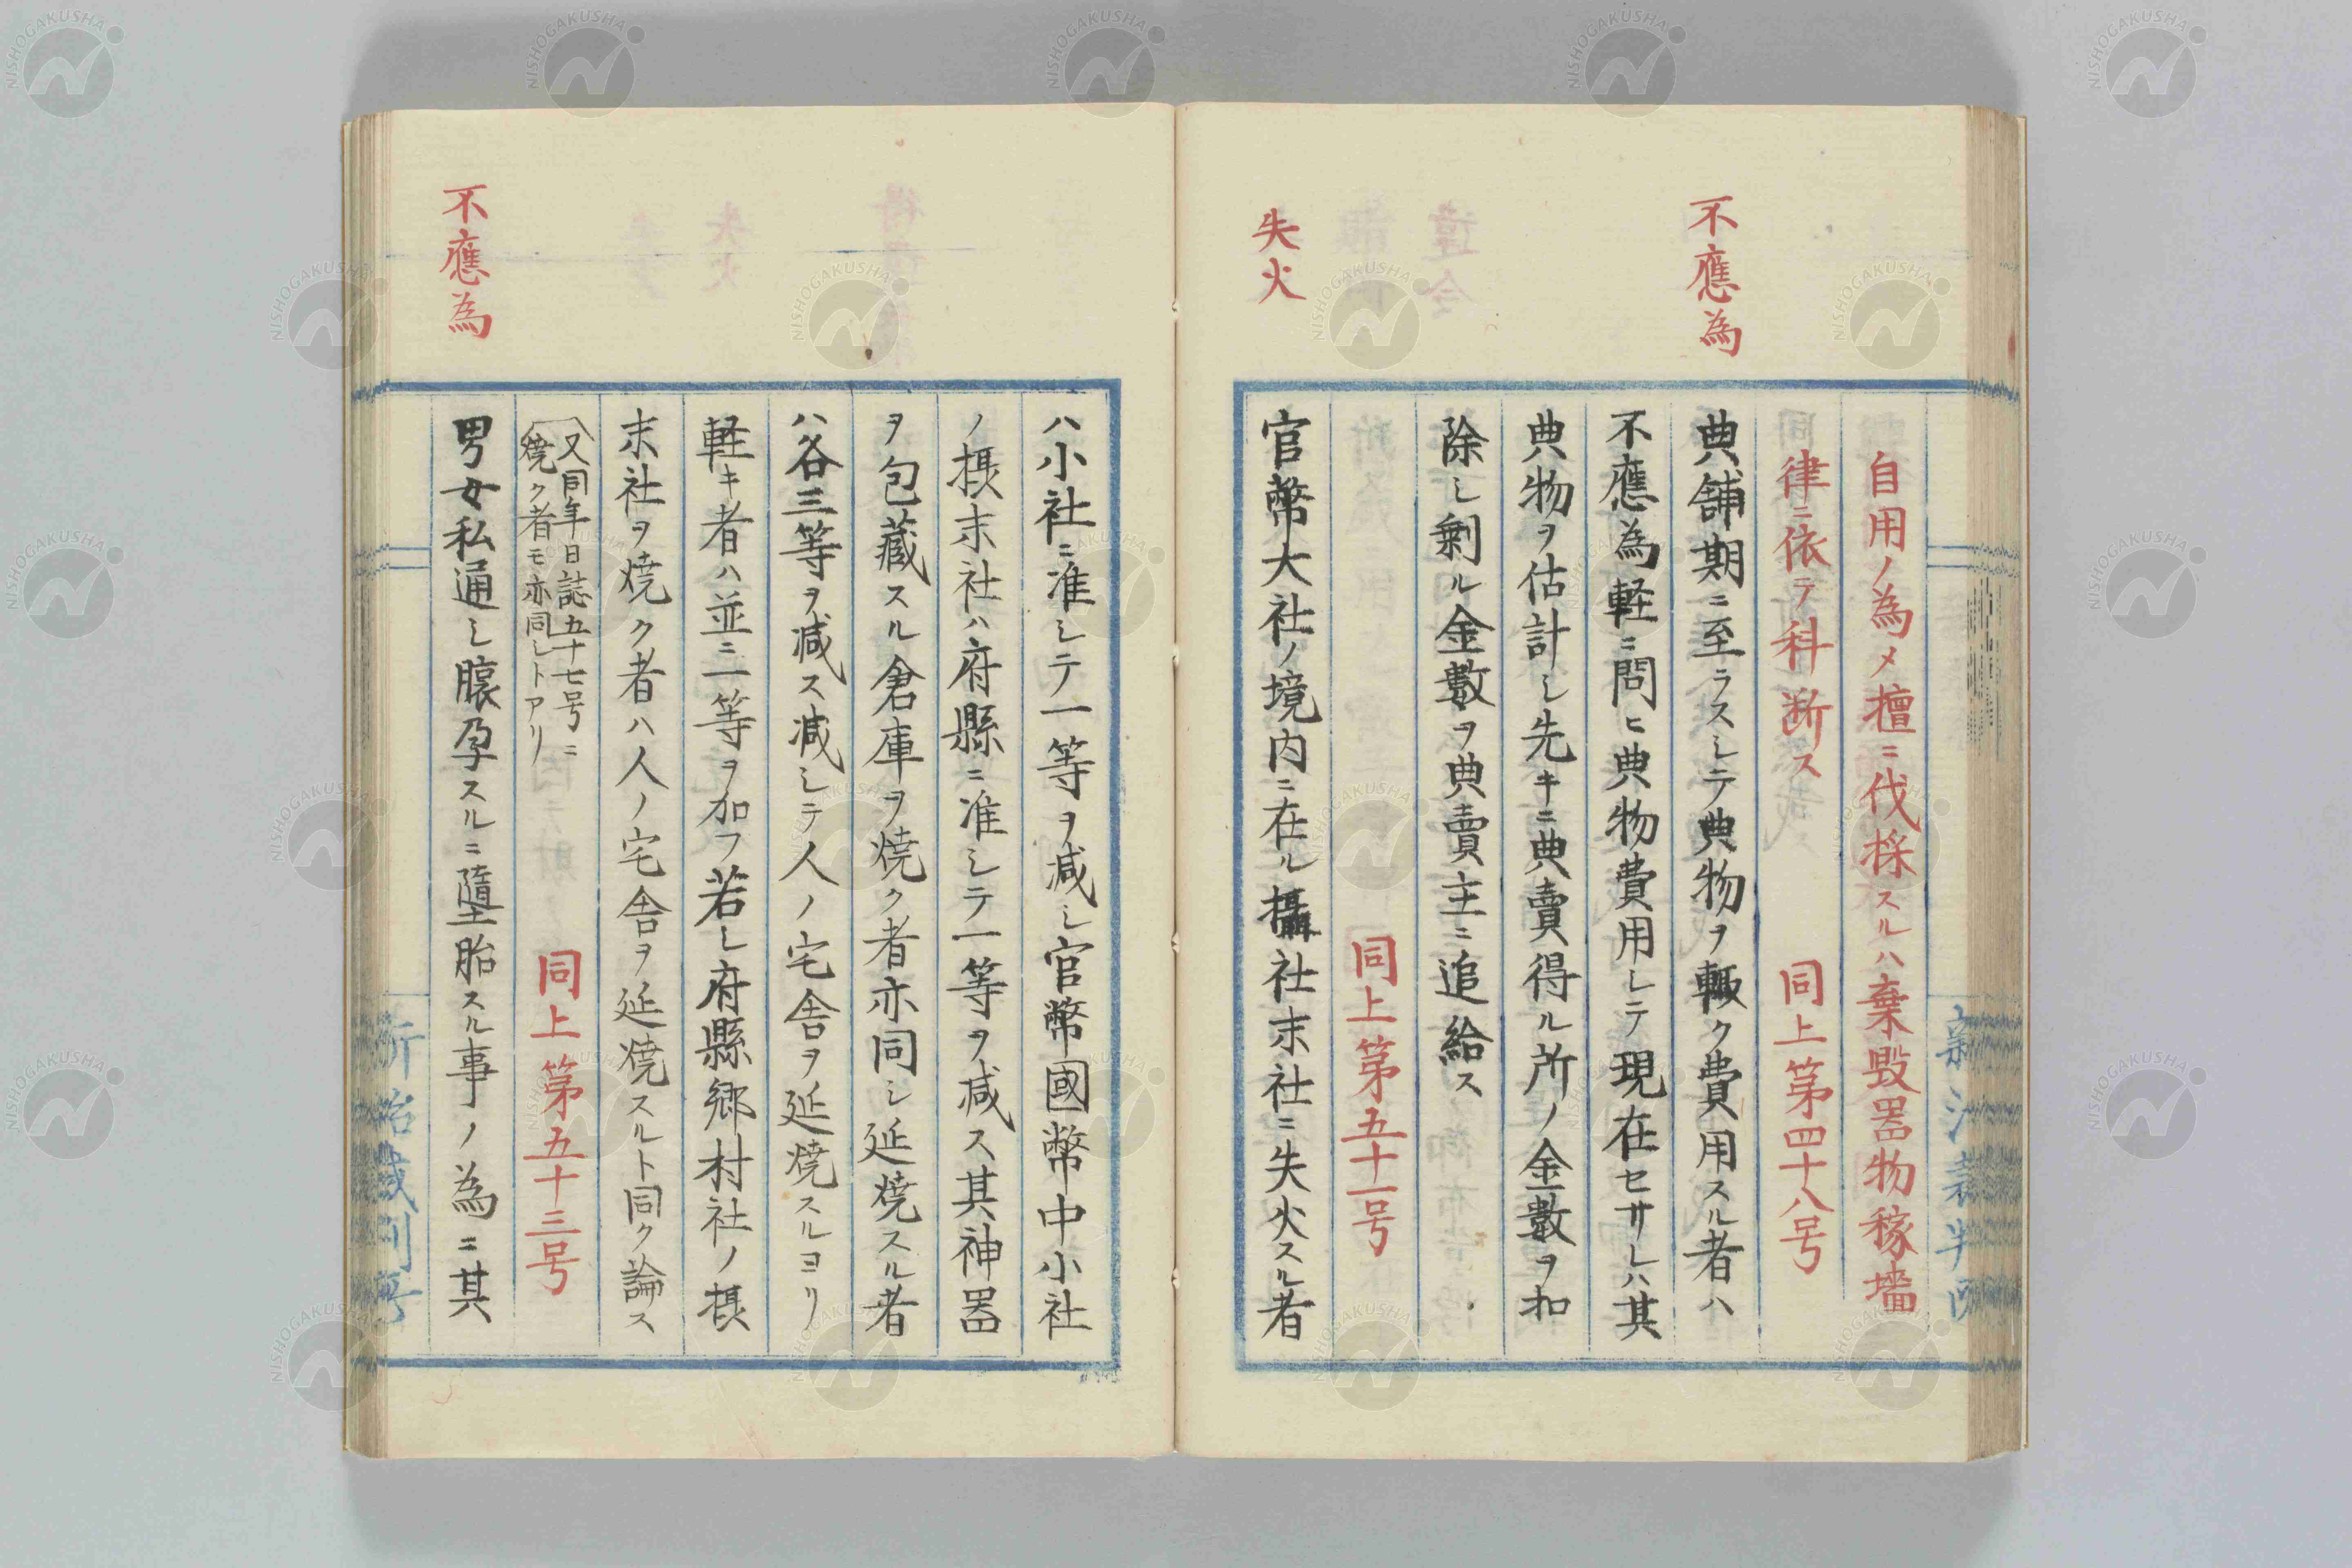 不應為
自用ノ為メ擅ニ伐採スルハ棄毀器物稼墻
律ニ依テ科断ス 同上第四十八号
典舗期ニ至ラスシテ典物ヲ輙ク費用スル者ハ
不應為軽ニ問ヒ典物費用シテ現在セサレハ其
典物ヲ估計シ先キニ典賣得ル所ノ金數ヲ扣
除シ剰ル金數ヲ典賣主ニ追給ス
同上第五十一号
失火
官幣大社ノ境内ニ在ル攝社末社ニ失火スル者
ハ小社ニ准シテ一等ヲ減シ官幣國幣中小社
ノ摂末社ハ府縣ニ准シテ一等ヲ减ス其神器
ヲ包藏スル倉庫ヲ焼ク者亦同シ延焼スル者
ハ各三等ヲ减ス减シテ人ノ宅舎ヲ延焼スルヨリ
軽キ者ハ並ニ一等ヲ加フ若シ府縣郷村社ノ摂
末社ヲ焼ク者ハ人ノ宅舎ヲ延焼スルト同ク論ス
又同年日誌五十七号ニ
焼ク者モ亦同シトアリ
同上第五十三号
不應為
男女私通シ懐孕スルニ墮胎スル事ノ為ニ其
新治裁判所
NISHOGAKUSHA